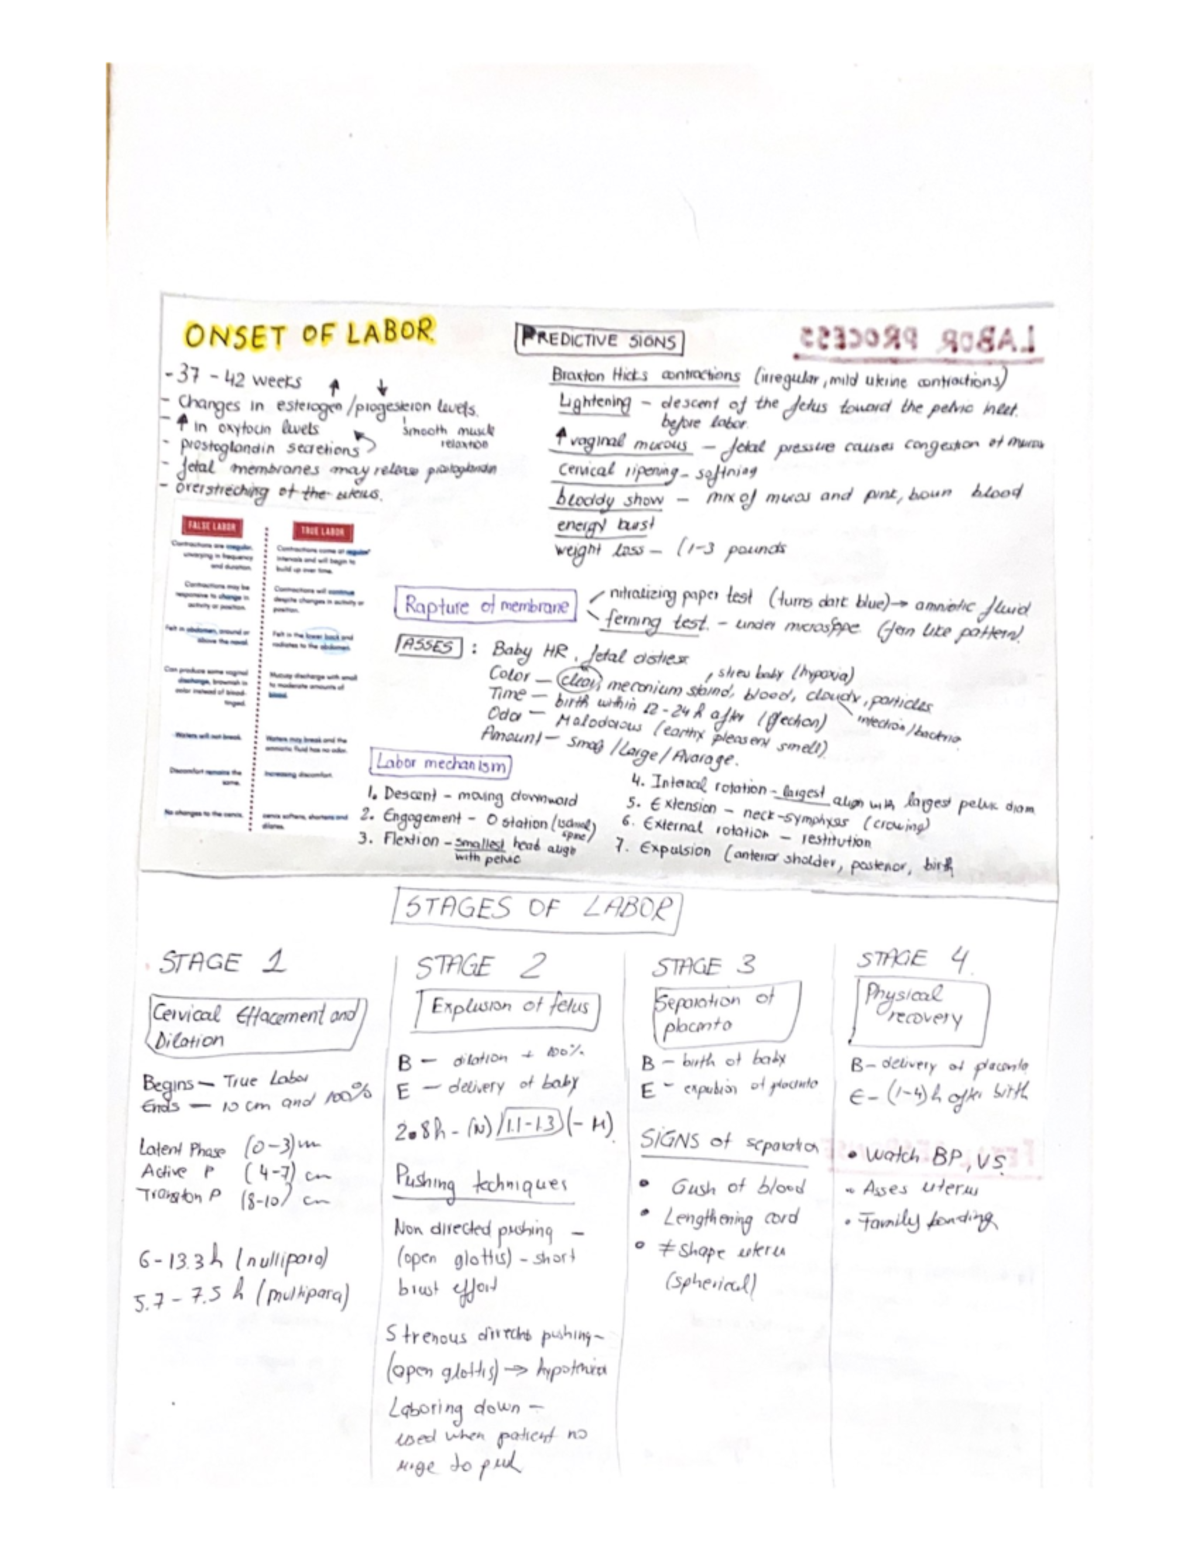 ONSET OF LABOR
- 37 - 42 weeks ↑ ↓
- Changes in esterogen/progesteron levels.
- ↑ in oxytocin levels
smooth muscle
relaxtion
- prostoglandin secretions
- fetal membranes may release prostoglandin
- overstreching of the uterus.
FALSE LABOR
Contractions are irregular,
varying in frequency
and duration.
Contractions may be
responsive to change in
activity or position.
Felt in abdomen, around or
above the navel.
Can produce some vaginal
discharge, brownish in
color instead of blood-
tinged.
Waters will not break.
Discomfort remains the
same.
No changes to the cervix.
TRUE LABOR
Contractions come at regular
intervals and will begin to
build up over time.
Contractions will continue
despite changes in activity or
position.
Felt in the lower back and
radiates to the abdomen.
Mucusy discharge with small
to moderate amounts of
blood.
Waters may break and the
amniotic fluid has no odor.
Increasing discomfort.
cervix softens, shortens and
dilates.
PREDICTIVE SIGNS
LABOR PROCESS
Braxton Hicks contractions (irregular, mild uterine contractions)
Lightening - descent of the fetus toward the pelvic inlet.
before labor.
↑ vaginal mucous - fetal pressure causes congestion of mucus
Cervical ripening - softning
bloddy show - mix of mucos and pink, boun blood
energy burst
weight loss - (1-3 pounds
Rapture of membrane
nitralizing paper test (turns dark blue) → amniotic fluid
ferning test. - under microsope (fern like pattern).
ASSES : Baby HR, fetal distress
, stres baby (hypoxia)
Color - clear, meconium staind, blood, cloudy, particles
infection/bacteria
Time - birth within 12-24 h after (ffechon)
Odor - Malodorous (earthy pleasent smell)
Amount - Small/Large/Avarage.
Labor mechanism
1. Descent - moving downward
2. Engagement - 0 station (ischial spine)
3. Flextion - smallest head align
with pelvic
4. Internal rotation - largest align with largest pelvic diam
5. Extension - neck-symphysis (crowing)
6. External rotation - restitution
7. Expulsion (anterior sholder, posterior, birth
STAGES OF LABOR
STAGE 1
Cervical Effacement and
Dilation
Begins - True Labor
Ends - 10 cm and 100%
Latent Phase (0-3) cm
Active P (4-7) cm
Transition P (8-10) cm
6-13.3 h (nullipara)
5.7-7.5 h (multipara)
STAGE 2
Explusion of fetus
B - dilation + 100%
E - delivery of baby
2.8h - (N)/1.1-1.3(- M)
Pushing techniques
Non directed pushing -
(open glottis) - short
brust effort
Strenous directed pushing -
(open glottis) →
Laboring down -
used when patient no
urge to push
STAGE 3
Separation of
placenta
B - birth of baby
E - expulsion of placenta
SIGNS of separation
• Gush of blood
• Lengthening cord
• ≠ Shape uterus
(spherical)
STAGE 4
Physical
recovery
B - delivery of placenta
E - (1-4) h after birth
• Watch BP, VS.
• Asses uterus
• Family bonding